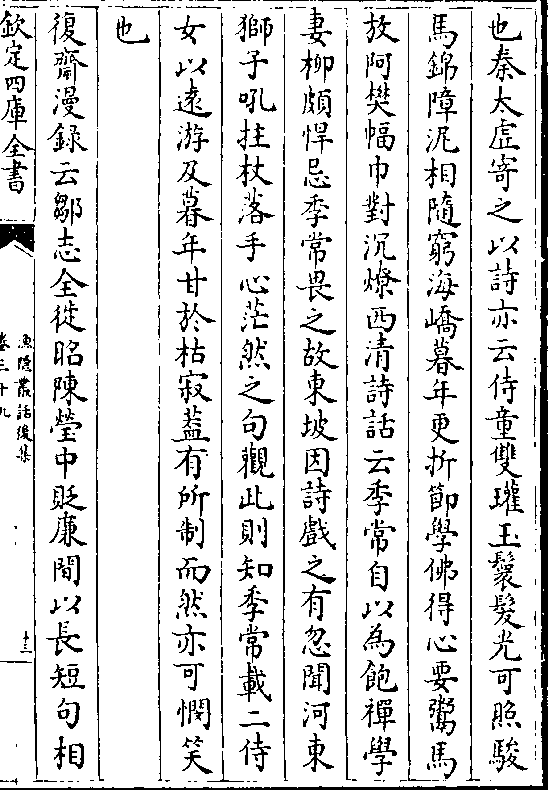 也秦太虛寄之以詩亦云侍童雙瓘玉鬟髮光可照駿
馬錦障泥相隨窮海嶠暮年更折節學佛得心要鬻馬
放阿樊幅巾對沉燎西清詩話云季常自以為飽禪學
妻柳頗悍忌季常畏之故東坡因詩戲之有忽聞河東
獅子吼拄杖落手心茫然之句觀此則知季常載二侍
女以遠游及暮年甘於枯寂蓋有所制而然亦可憫笑
也
復齋漫錄云鄒志全徙昭陳瑩中貶廉間以長短句相
欽定四庫全書
漁隱叢話後集
卷三十九
十三